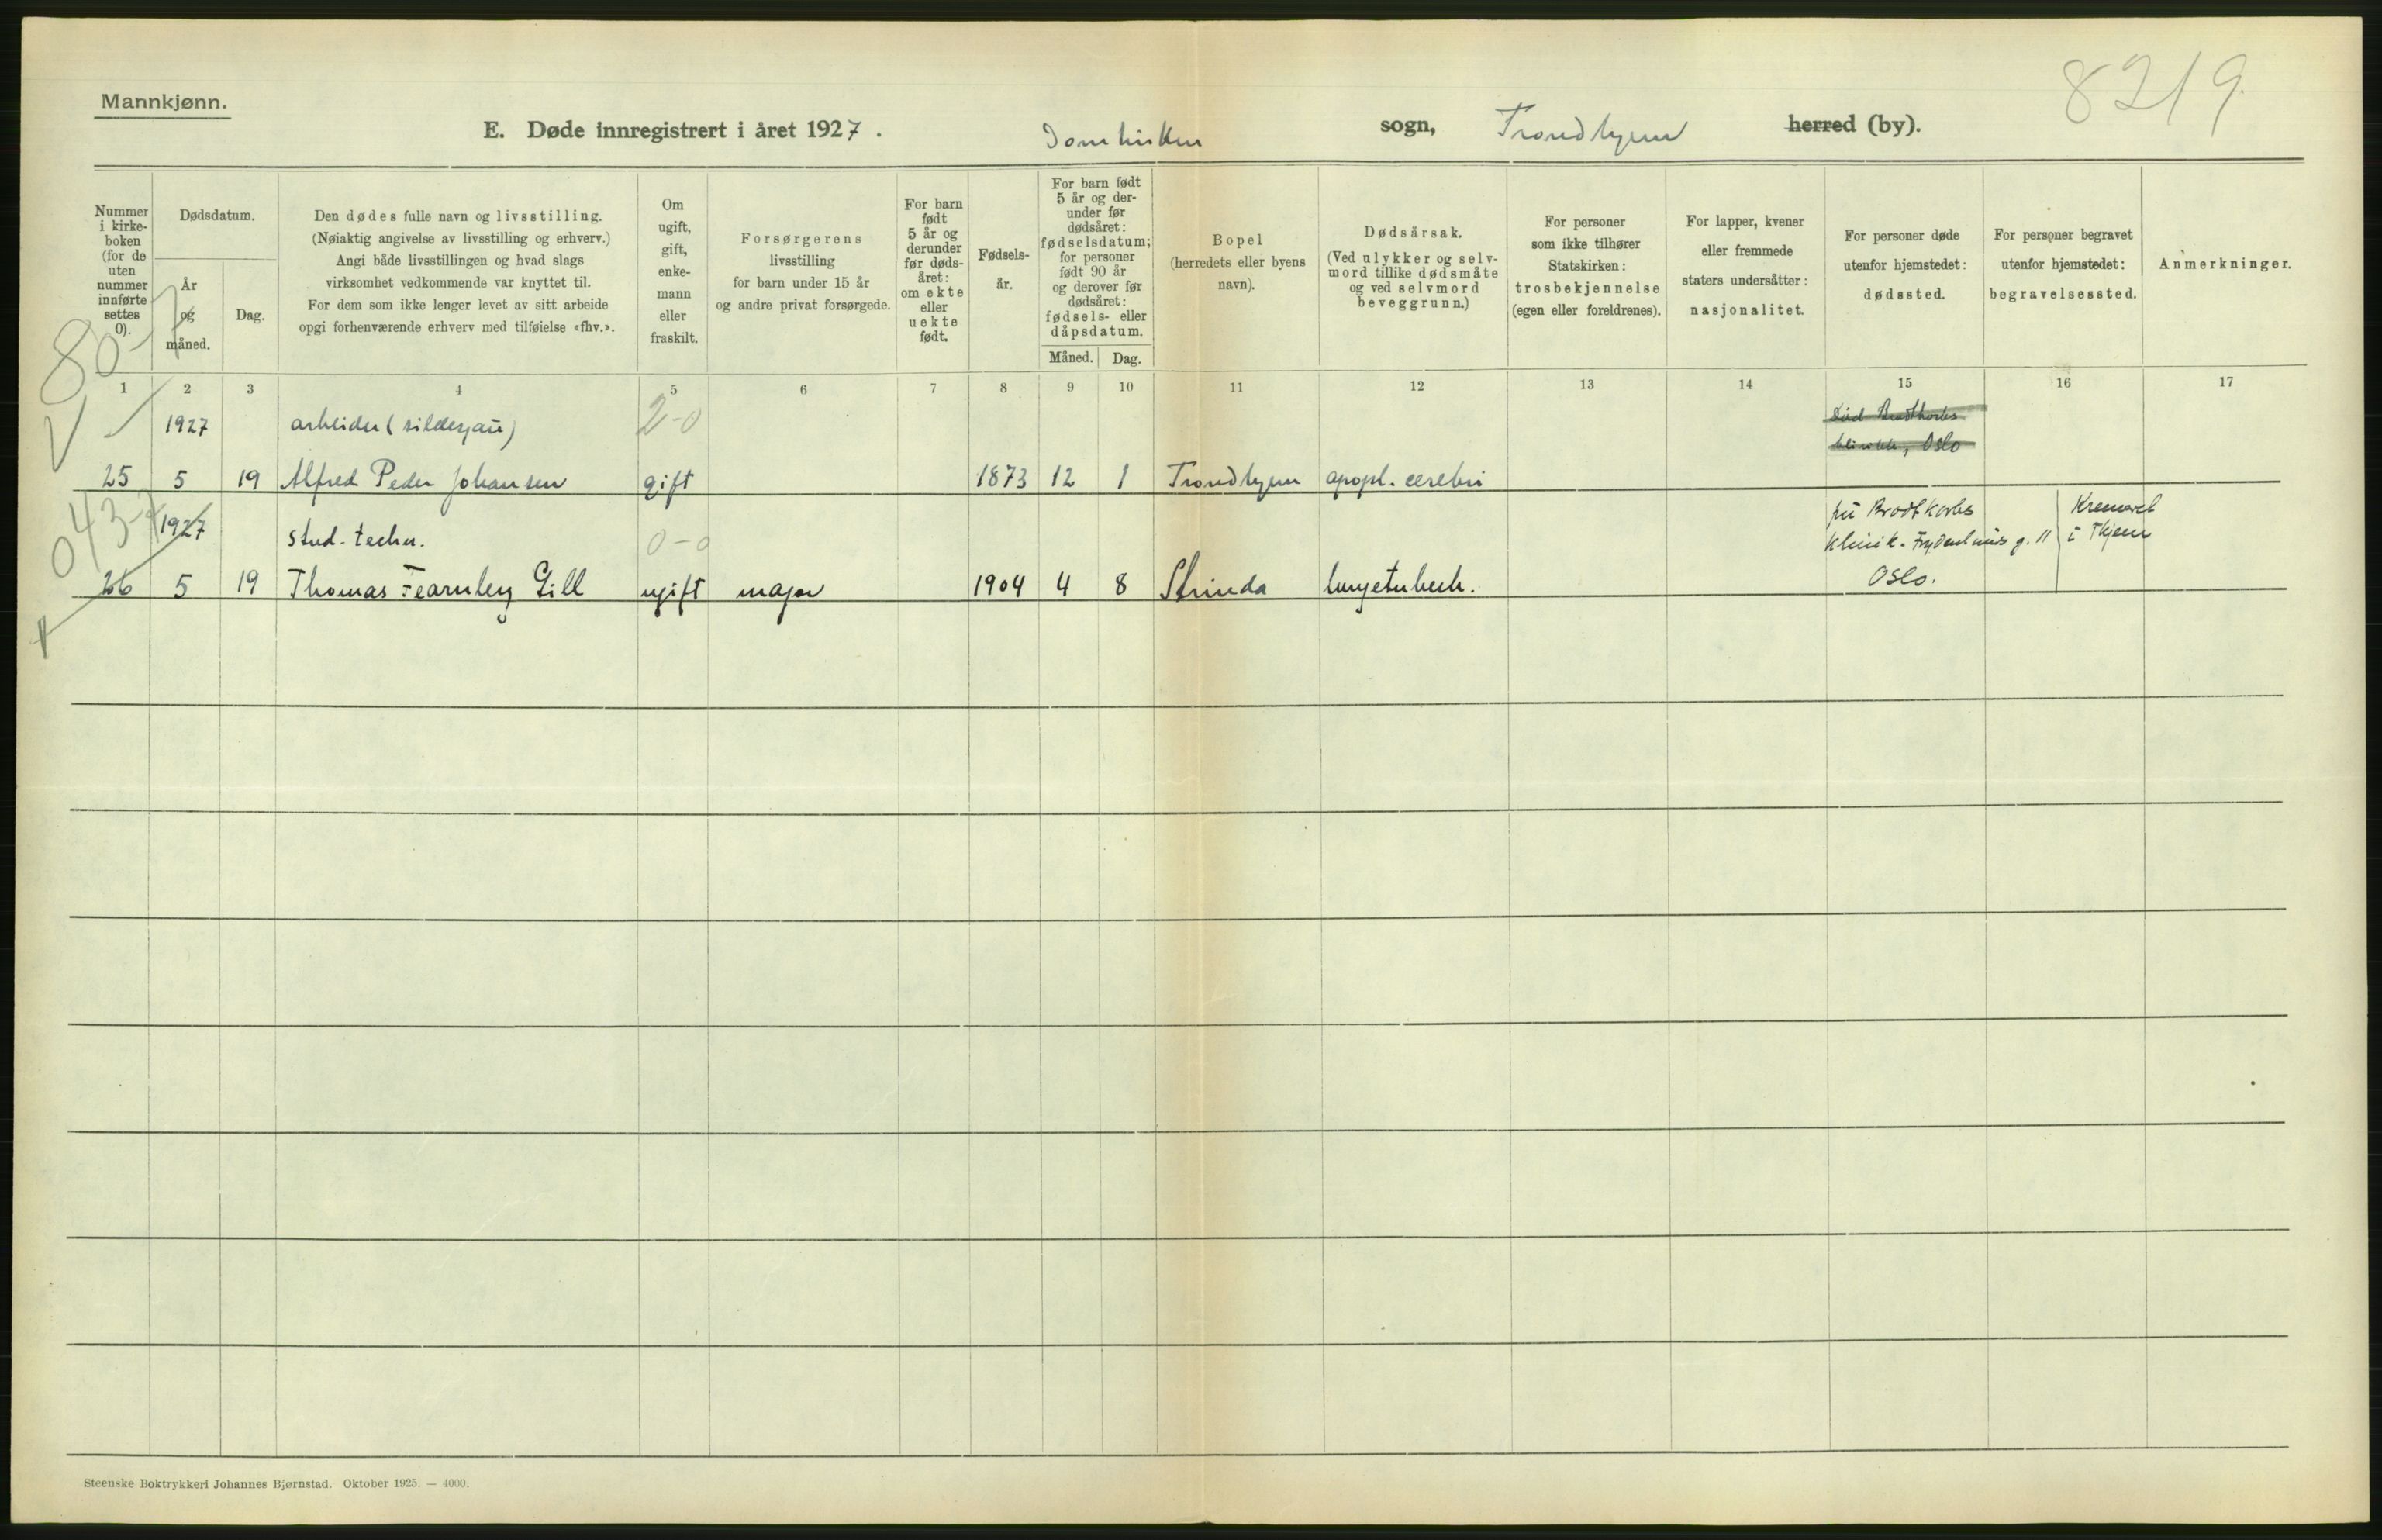 Mannkjønn.
8219.
E. Døde innregistrert i året 1927. Domkirken sogn, Trondhjem herred (by).
Nummer i kirke-boken (for de uten nummer innførte settes 0).
Dødsdatum.
År og måned.
Dag.
Den dødes fulle navn og livsstilling.
(Nøiaktig angivelse av livsstilling og erhverv.)
Angi både livsstillingen og hvad slags
virksomhet vedkommende var knyttet til.
For dem som ikke lenger levet av sitt arbeide
opgi forhenværende erhverv med tilføielse «fhv.».
Om ugift, gift, enke-mann eller fraskilt.
Forsørgerens
livsstilling
for barn under 15 år
og andre privat forsørgede.
For barn født 5 år og derunder før døds-året: om ekte eller uekte født.
Fødsels-år.
For barn født 5 år og der-under før dødsåret: fødselsdatum; for personer født 90 år og derover før dødsåret: fødsels- eller dåpsdatum.
Måned. Dag.
Bopel
(herredets eller byens
navn).
Dødsårsak.
(Ved ulykker og selv-
mord tillike dødsmåte
og ved selvmord
beveggrunn.)
For personer
som ikke tilhører
Statskirken:
trosbekjennelse
(egen eller foreldrenes).
For lapper, kvener
eller fremmede
staters undersåtter:
nasjonalitet.
For personer døde
utenfor hjemstedet:
dødssted.
For personer begravet
utenfor hjemstedet:
begravelsessted.
Anmerkninger.
1 2 3 4 5 6 7 8 9 10 11 12 13 14 15 16 17
80
1927 arbeider (sildesjau) 2-0
Død Brodtkorbs
klinikk, Oslo
25 5 19 Alfred Peder Johansen gift 1873 12 1 Trondhjem apopl. cerebri
043
1927 stud. techn. 0-0
på Brodtkorbs
klinik. Frydenlunds g. 11
Oslo.
Kremeret
i Thjem
26 5 19 Thomas Fearnley Gill ugift major 1904 4 8 Strinda lungetuberk.
Steenske Boktrykkeri Johannes Bjørnstad. Oktober 1925. — 4000.